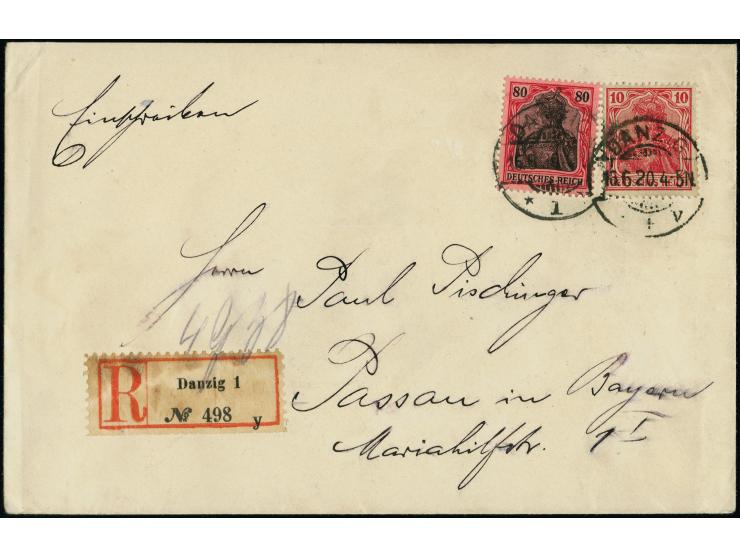 Einschreiben
80 80
DEUTSCHES REICH
10 10
DANZIG
16.6.20.4-5N.
* 1 v
Herrn Paul Pischinger
4938
Passau in Bayern
Mariahilfstr. 1 I
R
Danzig 1
№ 498 y